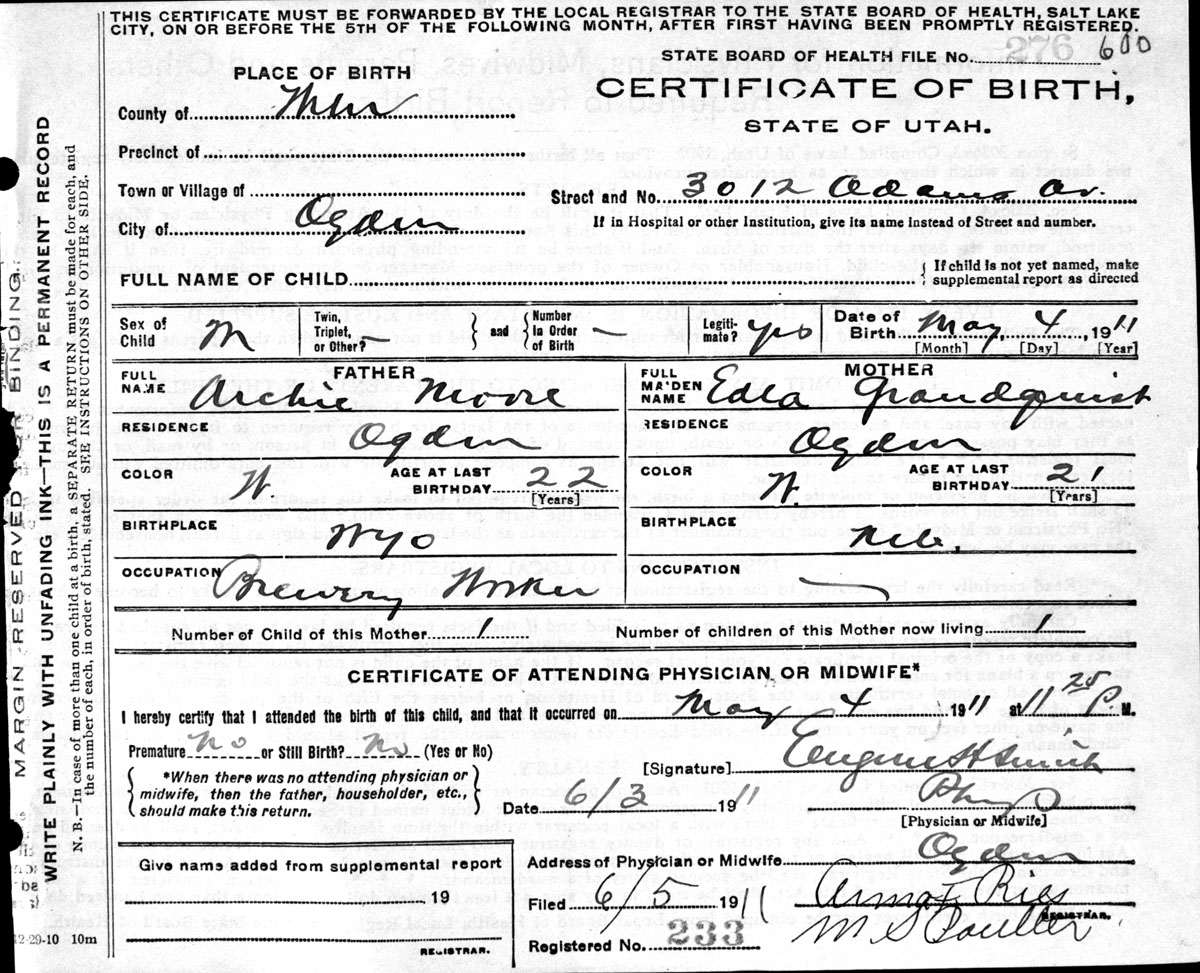 THIS CERTIFICATE MUST BE FORWARDED BY THE LOCAL REGISTRAR TO THE STATE BOARD OF HEALTH, SALT LAKE
CITY, ON OR BEFORE THE 5TH OF THE FOLLOWING MONTH, AFTER FIRST HAVING BEEN PROMPTLY REGISTERED.
STATE BOARD OF HEALTH FILE No. 276 600
PLACE OF BIRTH
CERTIFICATE OF BIRTH,
STATE OF UTAH.
County of
Precinct of
Town or Village of
Street and No. 3012 Adams Av.
City of Ogden
If in Hospital or other Institution, give its name instead of Street and number.
FULL NAME OF CHILD
If child is not yet named, make
supplemental report as directed
Sex of Child M
Twin, Triplet, or Other?
and
Number in Order of Birth —
Legiti-mate? yes
Date of Birth May 4, 1911
[Month] [Day] [Year]
FATHER
FULL NAME Archie Moore
MOTHER
FULL MAIDEN NAME Edla Grandquist
RESIDENCE Ogden
RESIDENCE Ogden
COLOR W.
AGE AT LAST BIRTHDAY 22
[Years]
COLOR W.
AGE AT LAST BIRTHDAY 21
[Years]
BIRTHPLACE Wyo
BIRTHPLACE Neb.
OCCUPATION Brewery Worker
OCCUPATION —
Number of Child of this Mother 1
Number of children of this Mother now living 1
CERTIFICATE OF ATTENDING PHYSICIAN OR MIDWIFE*
I hereby certify that I attended the birth of this child, and that it occurred on May 4 1911 at 11 25 P M.
Premature? No or Still Birth? No (Yes or No)
*When there was no attending physician or
midwife, then the father, householder, etc.,
should make this return.
[Signature] Eugene H Smith
Date 6/3 1911
[Physician or Midwife]
Give name added from supplemental report
19
REGISTRAR.
Address of Physician or Midwife Ogden
Filed 6/5 1911
REGISTRAR.
Registered No. 233
12-29-10 10m
MARGIN RESERVED FOR BINDING.
WRITE PLAINLY WITH UNFADING INK—THIS IS A PERMANENT RECORD
N. B.—In case of more than one child at a birth, a SEPARATE RETURN must be made for each, and
the number of each, in order of birth, stated. SEE INSTRUCTIONS ON OTHER SIDE.